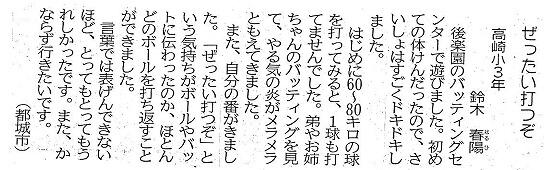 ぜったい打つぞ
高崎小3年
鈴木　春陽
はるひ
後楽園のバッティングセ
ンターで遊びました。初め
ての体けんだったので、さ
いしょはすごくドキドキし
ました。
はじめに60～80キロの球
を打ってみると、1球も打
てませんでした。弟やお姉
ちゃんのバッティングを見
て、やる気の炎がメラメラ
ともえてきました。
また、自分の番がきまし
た。「ぜったい打つぞ」と
いう気持ちがボールやバッ
トに伝わったのか、ほとん
どのボールを打ち返すこと
ができました。
言葉では表げんできない
ほど、とってもとってもう
れしかったです。また、か
ならず行きたいです。
（都城市）